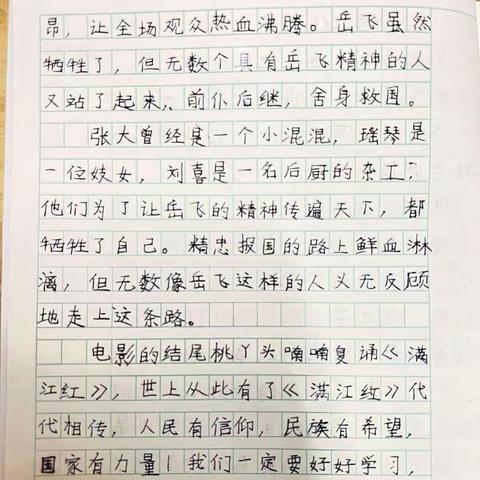 昂，让全场观众热血沸腾。岳飞虽然
牺牲了，但无数个具有岳飞精神的人
又站了起来，前仆后继，舍身救国。
张大曾经是一个小混混，瑶琴是
一位妓女，刘喜是一名后厨的杂工；
他们为了让岳飞的精神传遍天下，都
牺牲了自己。精忠报国的路上鲜血淋
漓，但无数像岳飞这样的人义无反顾
地走上这条路。
电影的结尾桃丫头喃喃复诵《满
江红》，世上从此有了《满江红》代
代相传，人民有信仰，民族有希望，
国家有力量！我们一定要好好学习，